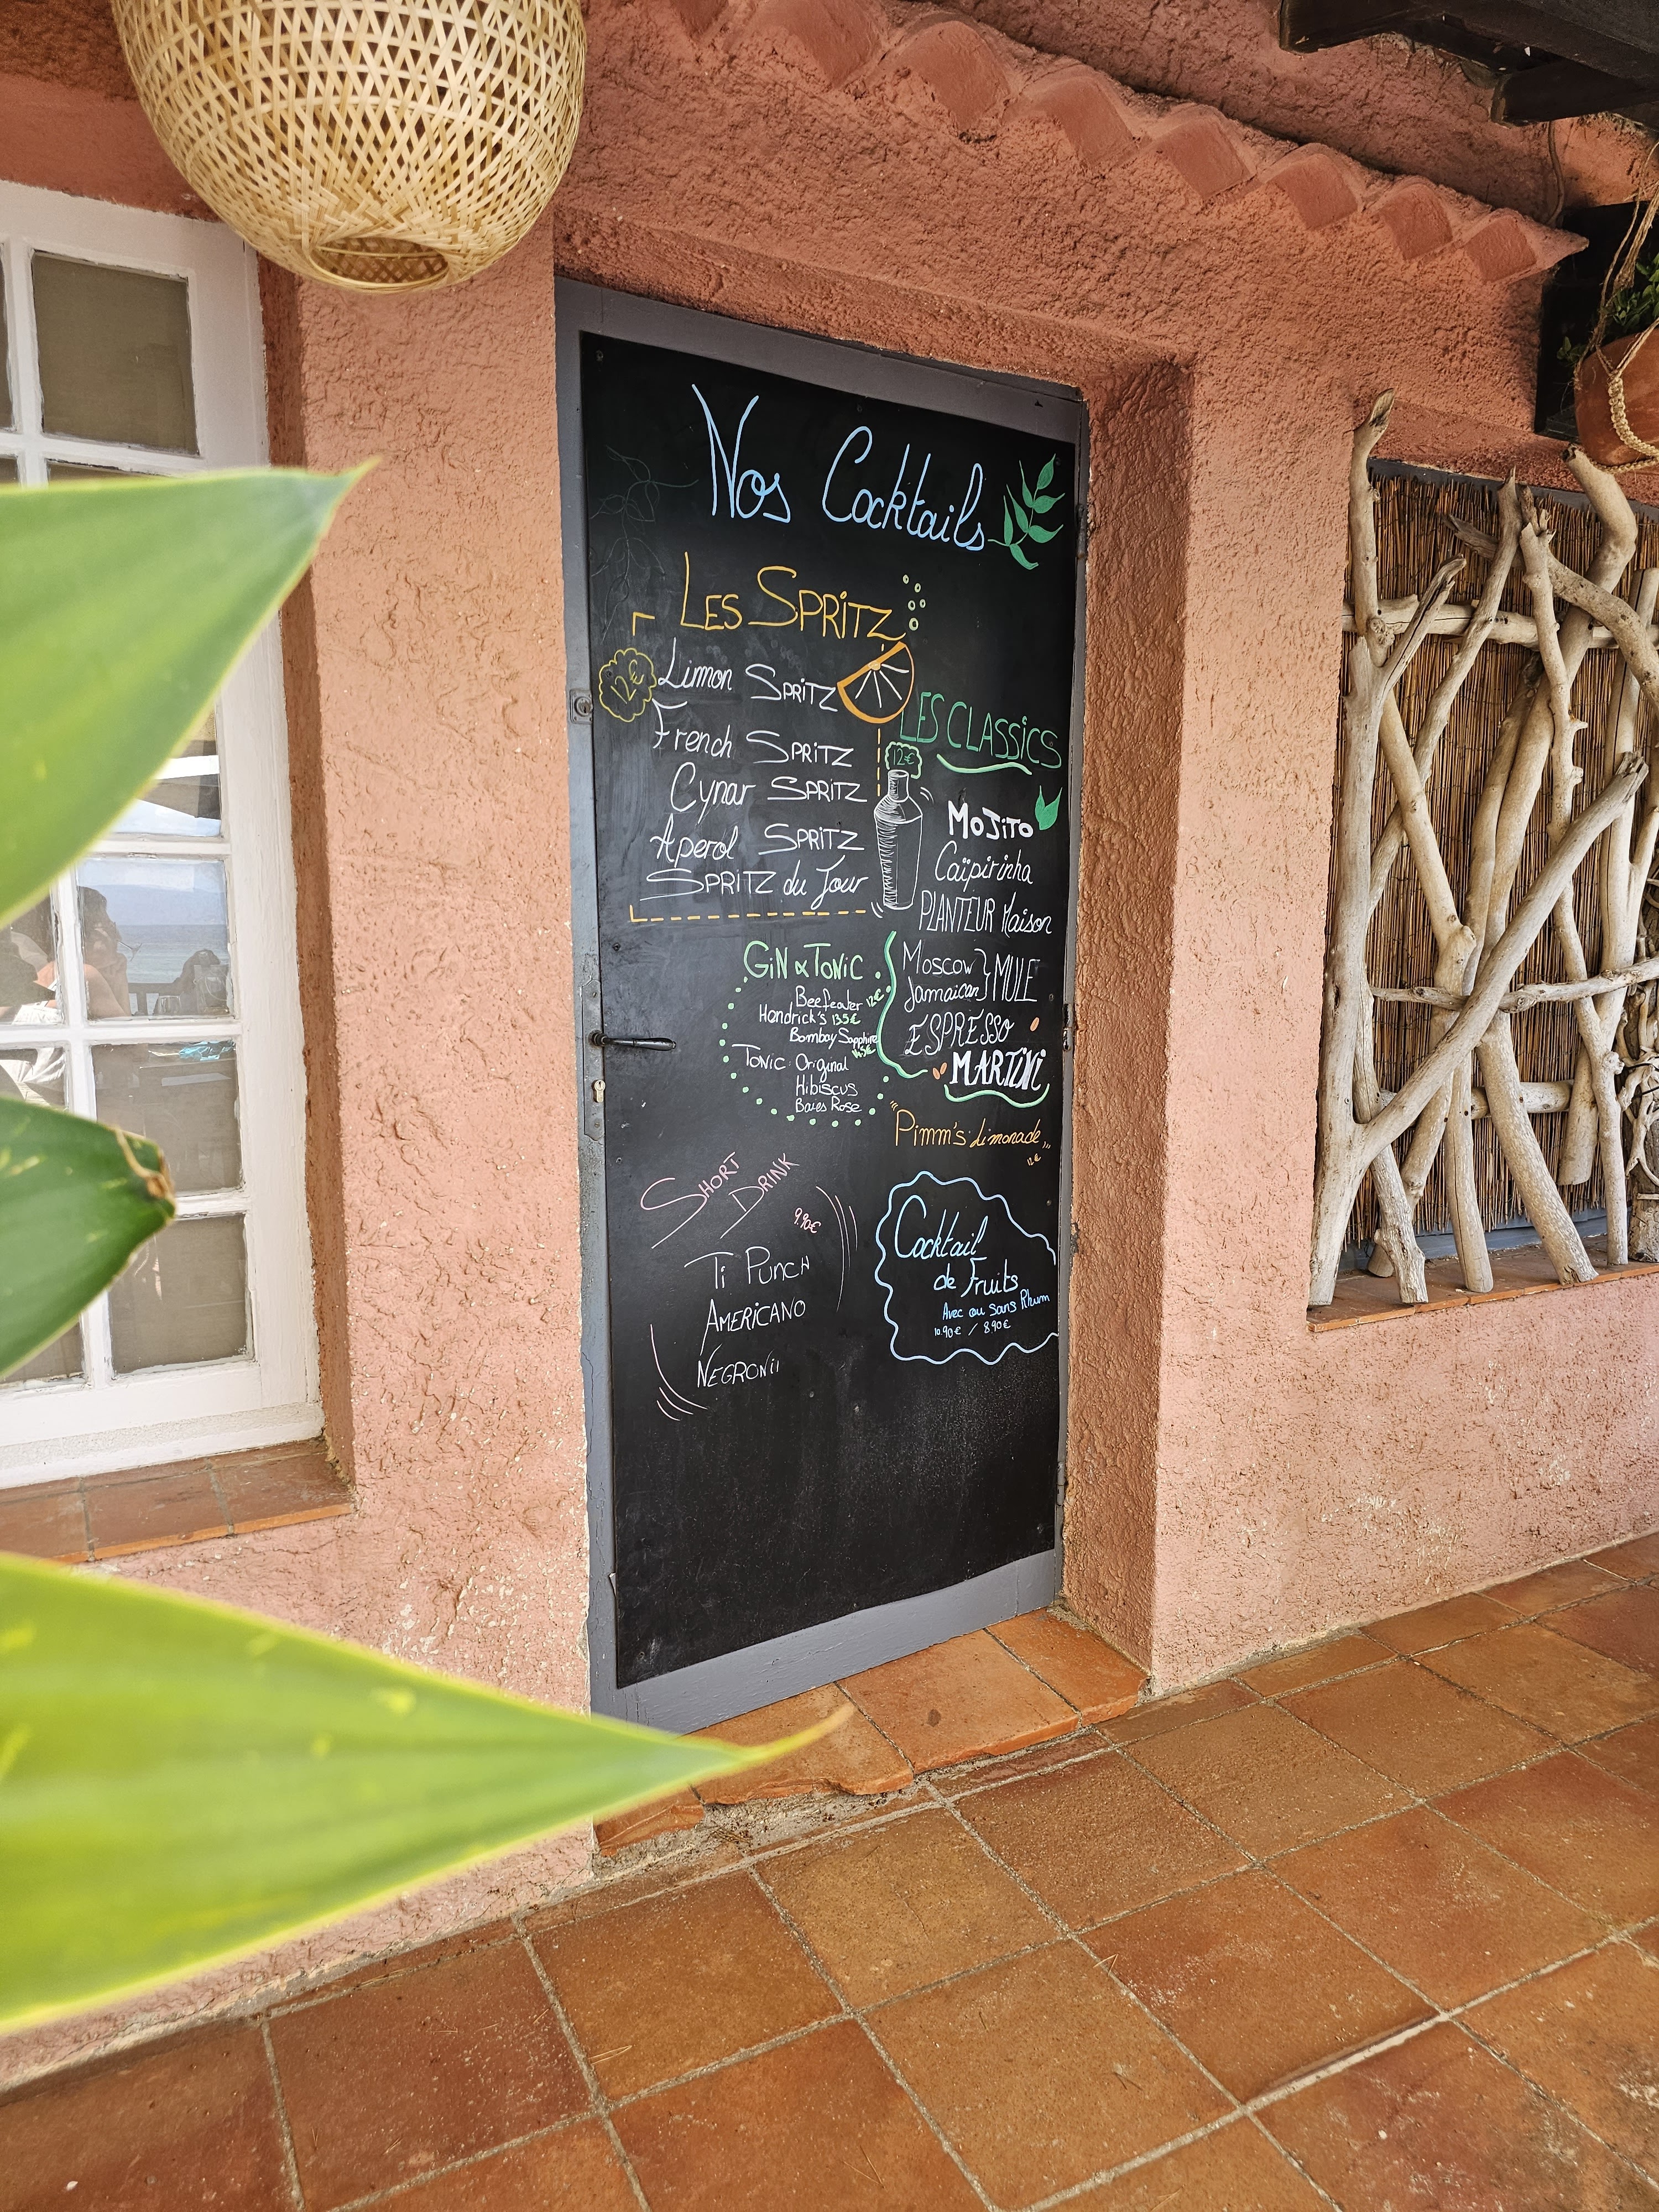 Nos Cocktails
LES SPRITZ
12€
Limon SPRITZ
French SPRITZ
Cynar SPRITZ
Aperol SPRITZ
SPRITZ du Jour
LES CLASSICS
12€
MOJITO
Caïpirinha
PLANTEUR Maison
Moscow
Jamaican
} MULE
ESPRESSO
MARTINI
GIN & TONIC
Beefeater 12€
Hendrick's 13.5€
Bombay Sapphire
TONIC Original
Hibiscus
Baies Rose
Pimm's Limonade
12€
SHORT
DRINK
9.90€
Ti PUNCH
AMERICANO
NEGRONii
Cocktail
de Fruits
Avec ou sans Rhum
10.90€ / 8.90€